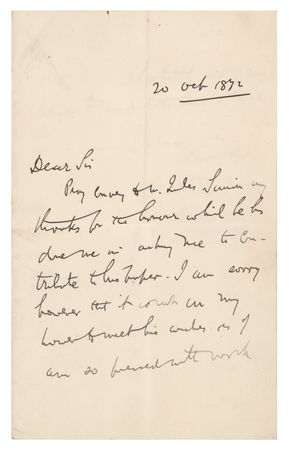 20 Oct 1872
Dear Sir
Pray convey to M. Jules Simon my
thanks for the honour which he has
done me in asking me to con-
tribute to his paper. I am sorry
however that it is not in my
power to meet his wishes as I
am so pressed with work